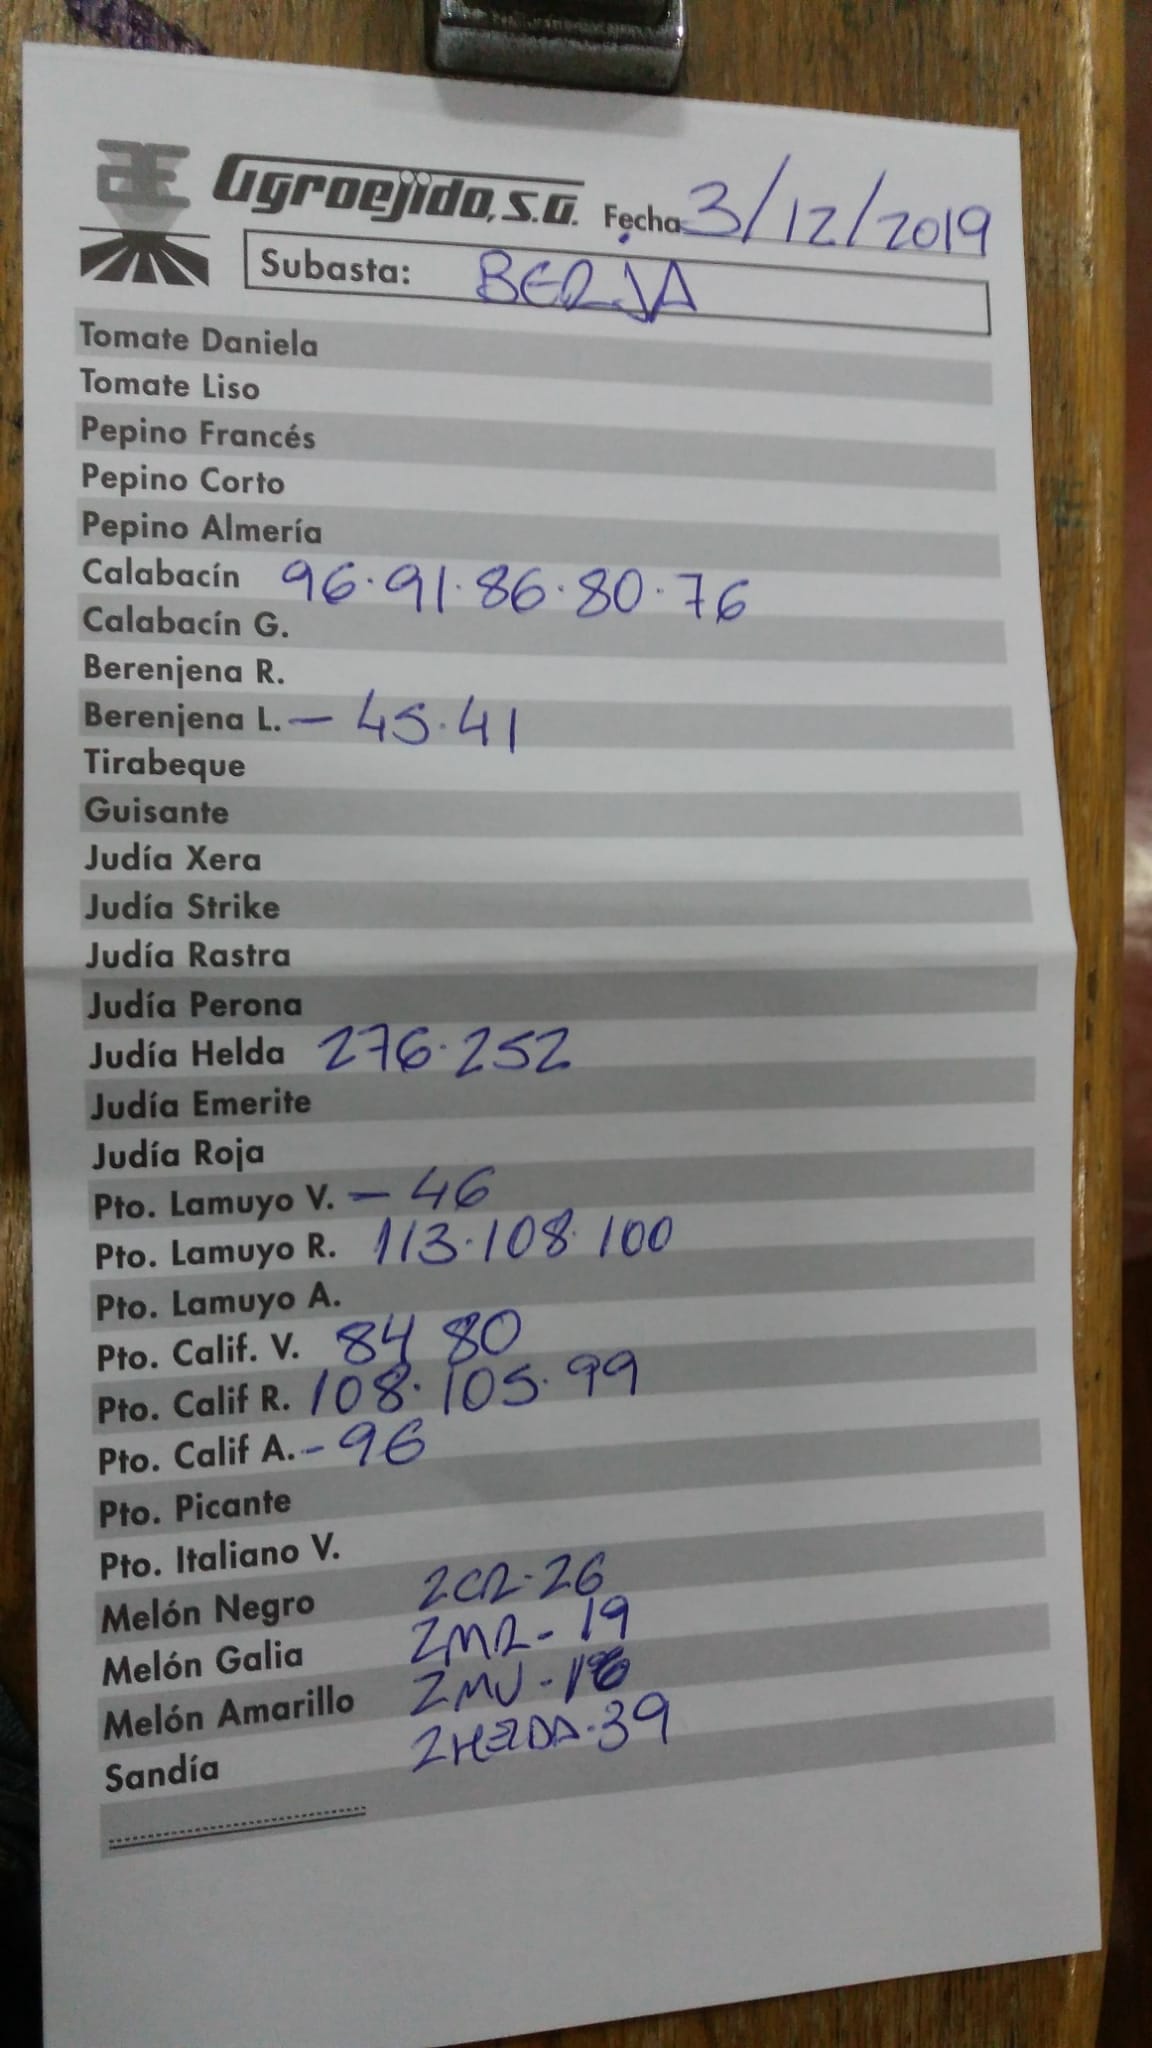 Agroejido, S.A. Fecha 3/12/2019
Subasta: BERJA
Tomate Daniela
Tomate Liso
Pepino Francés
Pepino Corto
Pepino Almería
Calabacín 96.91.86.80.76
Calabacín G.
Berenjena R.
Berenjena L. - 45.41
Tirabeque
Guisante
Judía Xera
Judía Strike
Judía Rastra
Judía Perona
Judía Helda 276.252
Judía Emerite
Judía Roja
Pto. Lamuyo V. - 46
Pto. Lamuyo R. 113.108.100
Pto. Lamuyo A.
Pto. Calif. V. 84 80
Pto. Calif R. 108.105.99
Pto. Calif A. - 96
Pto. Picante
Pto. Italiano V.
Melón Negro 2CR-26
Melón Galia 2MR-19
Melón Amarillo 2MV-
Sandía 39